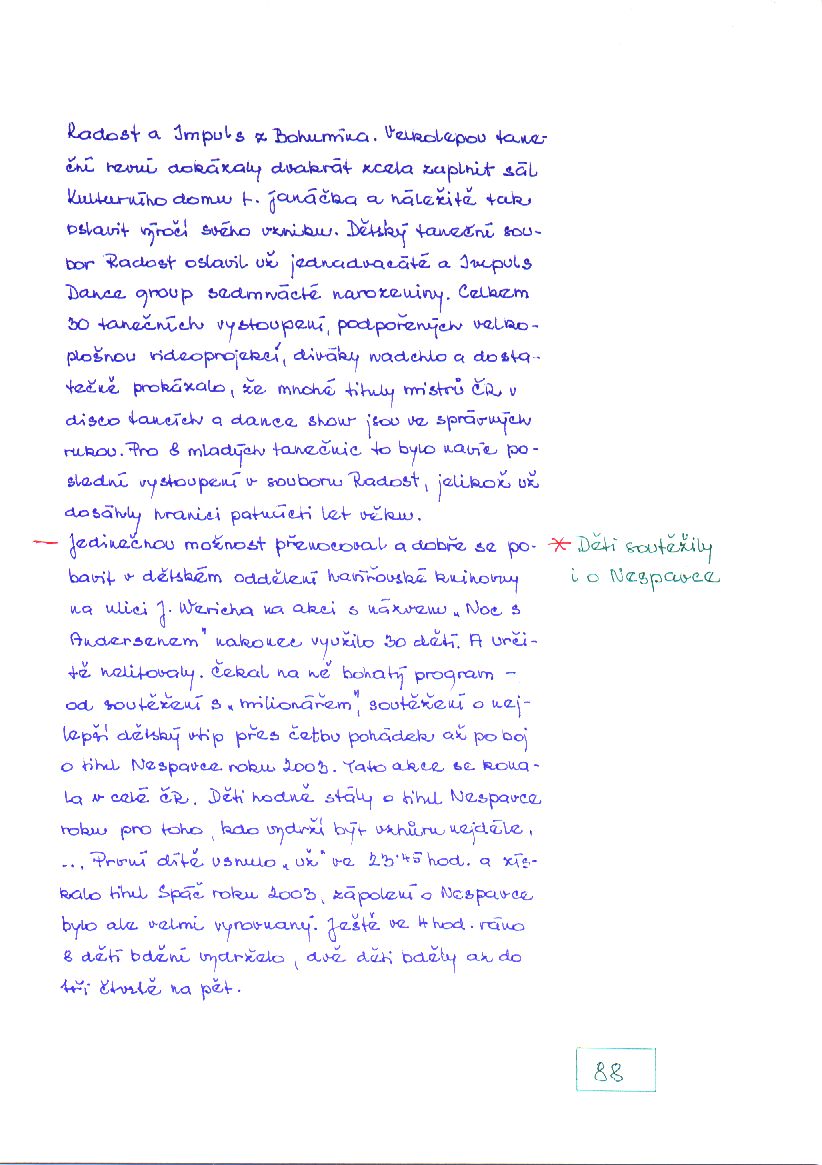 Radost a Impuls z Bohumína. Velkolepou tane-
ční revuí dokázaly dvakrát zcela zaplnit sál
Kulturního domu L. Janáčka a náležitě tak
oslavit výročí svého vzniku. Dětský taneční sou-
bor Radost oslavil už jednadvacáté a Impuls
Dance group sedmnácté narozeniny. Celkem
30 tanečních vystoupení, podpořených velko-
plošnou videoprojekcí, diváky nadchlo a dosta-
tečně prokázalo, že mnohé tituly mistrů ČR v
disco tancích a dance show jsou ve správných
rukou. Pro 8 mladých tanečnic to bylo navíc po-
slední vystoupení v souboru Radost, jelikož už
dosáhly hranici patnácti let věku.
— Jedinečnou možnost přenocoval a dobře se po-
bavit v dětském oddělení havířovské knihovny
na ulici J. Wericha na akci s názvem „Noc s
Andersenem" nakonec využilo 30 dětí. A urči-
tě nelitovaly. Čekal na ně bohatý program –
od soutěžení s „milionářem", soutěžení o nej-
lepší dětský vtip přes četbu pohádek až po boj
o titul Nespavce roku 2003. Tato akce se kona-
la v celé ČR. Děti hodně stály o titul Nespavce
roku pro toho, kdo vydrží být vzhůru nejdéle.
... První dítě usnulo „už" ve 23⁴⁵ hod. a zís-
kalo titul Spáč roku 2003, zápolení o Nespavce
bylo ale velmi vyrovnaný. Ještě ve 4 hod. ráno
8 dětí bdění vydrželo, dvě děti bděly až do
tři čtvrtě na pět.
* Děti soutěžily
i o Nespavce
88